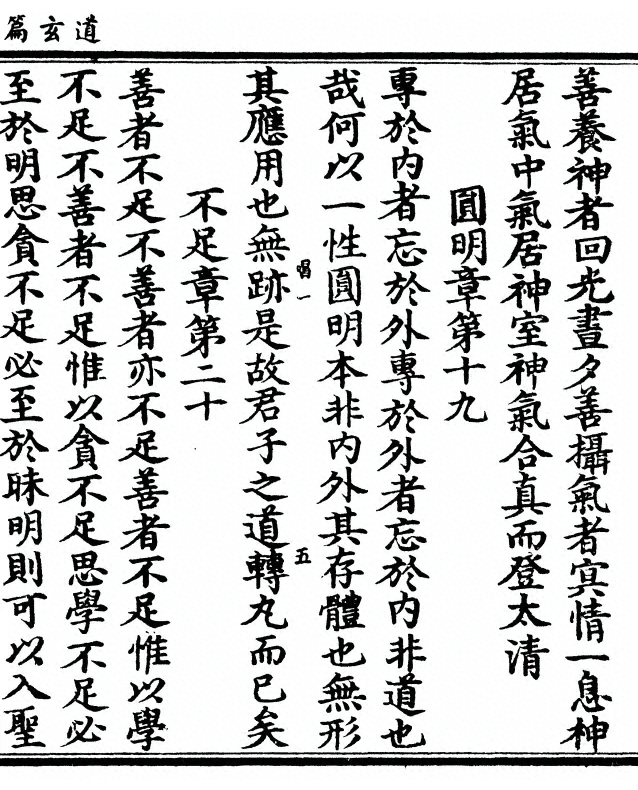 道玄篇
善養神者回光晝夕善攝氣者冥情一息神
居氣中氣居神室神氣合真而登太清
圓明章第十九
專於內者忘於外專於外者忘於內非道也
哉何以一性圓明本非內外其存體也無形
唱一
五
其應用也無跡是故君子之道轉丸而已矣
不足章第二十
善者不足不善者亦不足善者不足惟以學
不足不善者不足惟以貪不足思學不足必
至於明思貪不足必至於昧明則可以入聖